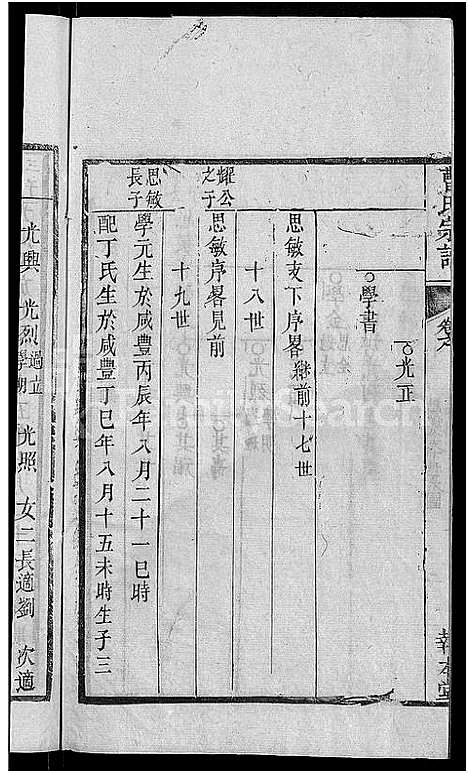 曹氏宗譜
報本堂
○光正
○學書
思敏支下序畧
前十七世
十八世
耀公
之子
思敏序畧見前
十九世
思敏
長子
學元生於咸豐丙辰年八月二十一巳時
配丁氏生於咸豐丁巳年八月十五未時生子三
光興 光烈過立學朝 光照 女二長適劉 次適